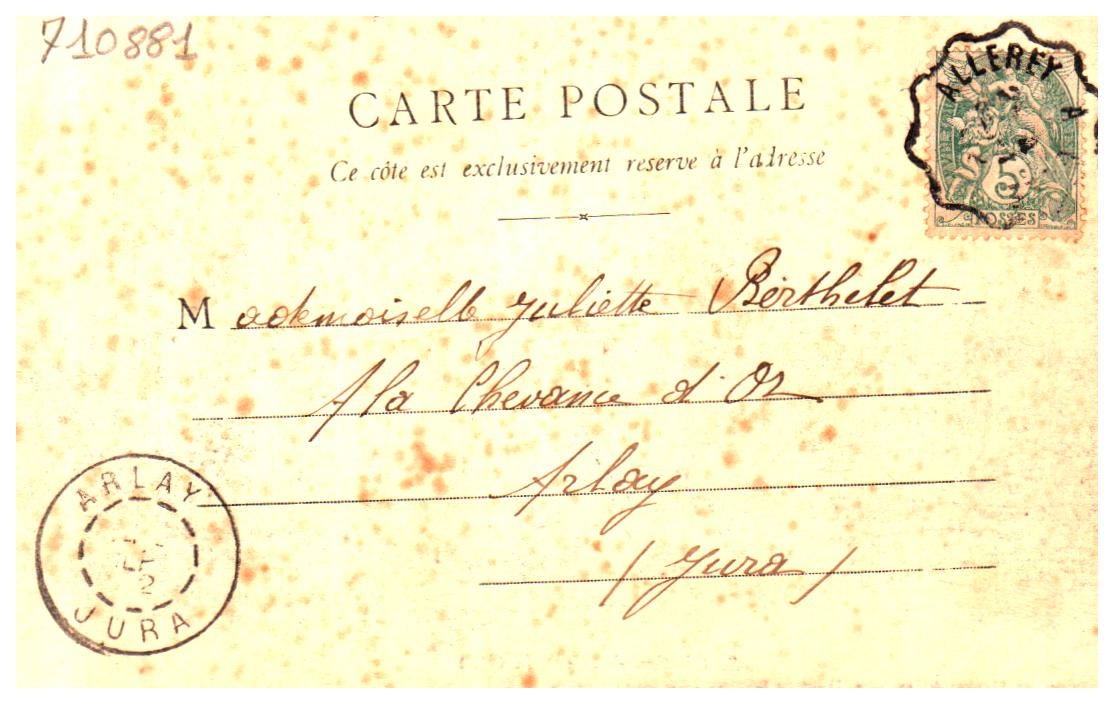 710881
CARTE POSTALE
Ce côté est exclusivement reserve à l'adresse
ALLEREY A
5c
POSTES
Mademoiselle Juliette Berthelet
A la Chevance d'Or
Arlay
(Jura)
ARLAY
2
JURA